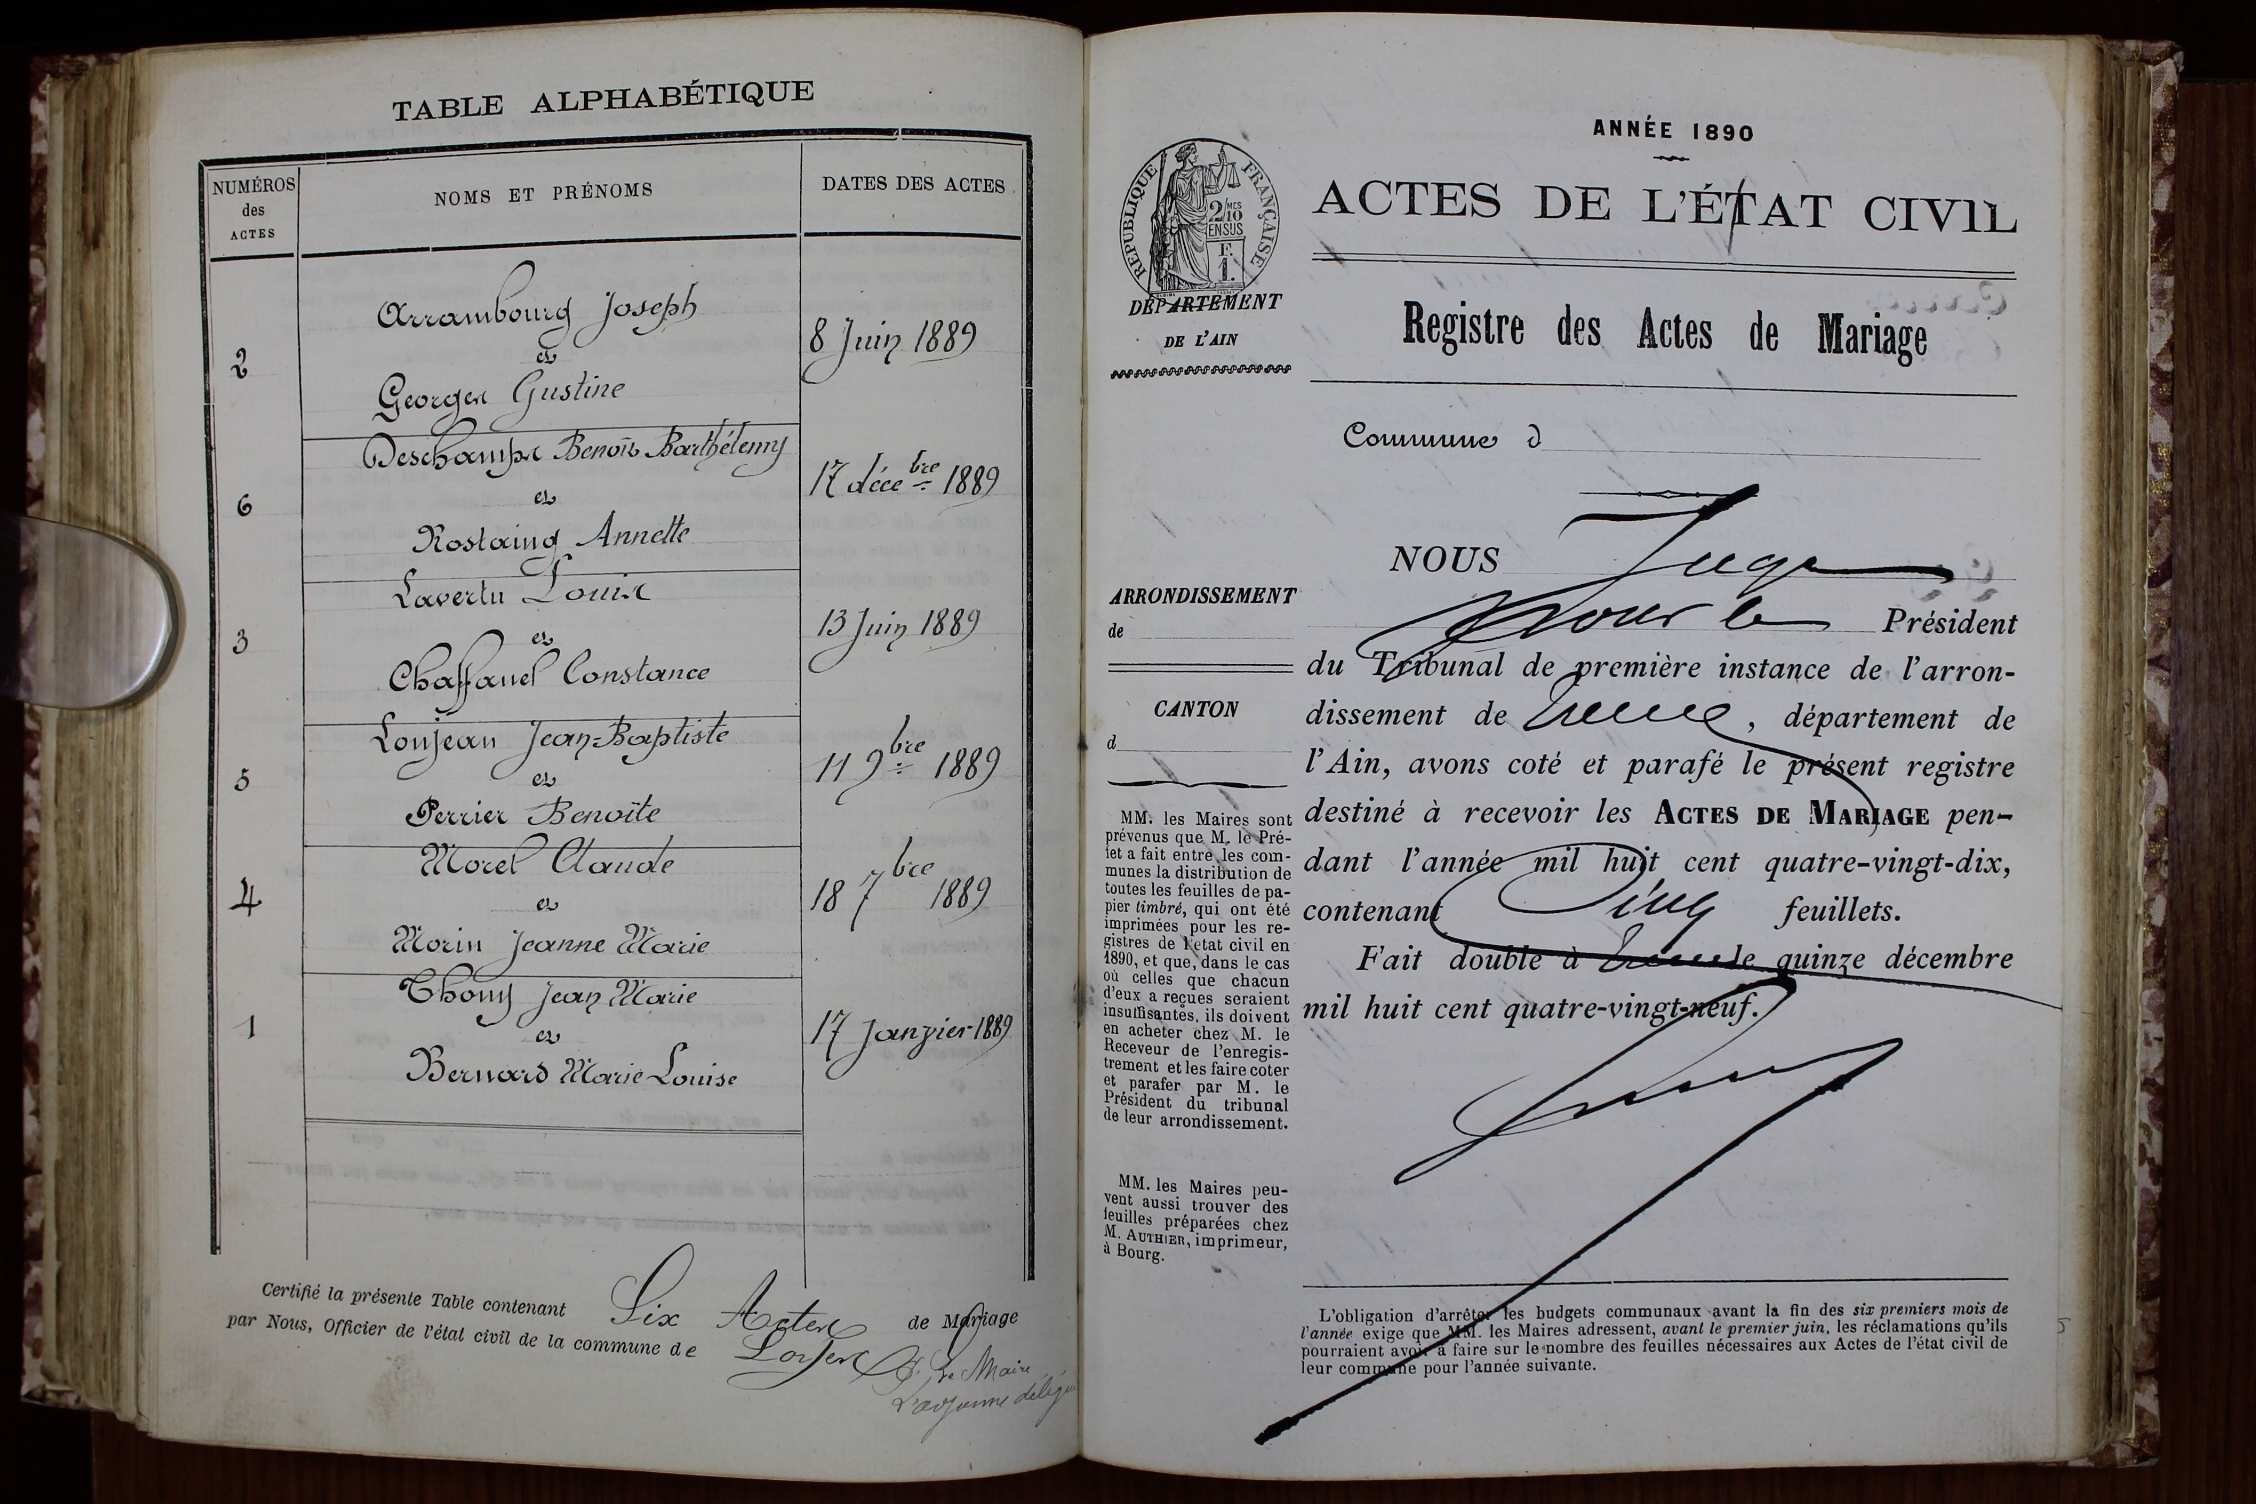 TABLE ALPHABÉTIQUE
NUMÉROS
des
ACTES
NOMS ET PRÉNOMS
DATES DES ACTES
Arrambourg Joseph
2
et
8 Juin 1889
Georges Gustine
Deschamps Benoît Barthélemy
6
et
17 déce bre 1889
Rostaing Annette
Lavertu Louis
3
et
13 Juin 1889
Chaffanel Constance
Loujean Jean-Baptiste
5
et
11 9bre 1889
Perrier Benoîte
Morel Claude
4
et
18 7bre 1889
Morin Jeanne Marie
Thony Jean Marie
1
et
17 Janvier 1889
Bernard Marie Louise
Certifié la présente Table contenant Six Actes de Mariage
par Nous, Officier de l'état civil de la commune de Loyes
P. Le Maire
L'adjoint délégué
ANNÉE 1890
RÉPUBLIQUE FRANÇAISE
2/10 MES
EN SUS
F.
1.
ACTES DE L'ÉTAT CIVIL
DÉPARTEMENT
DE L'AIN
Registre des Actes de Mariage
Commune d
NOUS Juge
pour le Président
du Tribunal de première instance de l'arron-
dissement de Trévoux, département de
l'Ain, avons coté et parafé le présent registre
destiné à recevoir les ACTES DE MARIAGE pen-
dant l'année mil huit cent quatre-vingt-dix,
contenant Cinq feuillets.
Fait double à Trévoux le quinze décembre
mil huit cent quatre-vingt-neuf.
ARRONDISSEMENT
de
CANTON
d
MM. les Maires sont
prévenus que M. le Pré-
fet a fait entre les com-
munes la distribution de
toutes les feuilles de pa-
pier timbré, qui ont été
imprimées pour les re-
gistres de l'état civil en
1890, et que, dans le cas
où celles que chacun
d'eux a reçues seraient
insuffisantes, ils doivent
en acheter chez M. le
Receveur de l'enregis-
trement et les faire coter
et parafer par M. le
Président du tribunal
de leur arrondissement.
MM. les Maires peu-
vent aussi trouver des
feuilles préparées chez
M. AUTHIER, imprimeur,
à Bourg.
L'obligation d'arrêter les budgets communaux avant la fin des six premiers mois de
l'année exige que MM. les Maires adressent, avant le premier juin, les réclamations qu'ils
pourraient avoir à faire sur le nombre des feuilles nécessaires aux Actes de l'état civil de
leur commune pour l'année suivante.
5